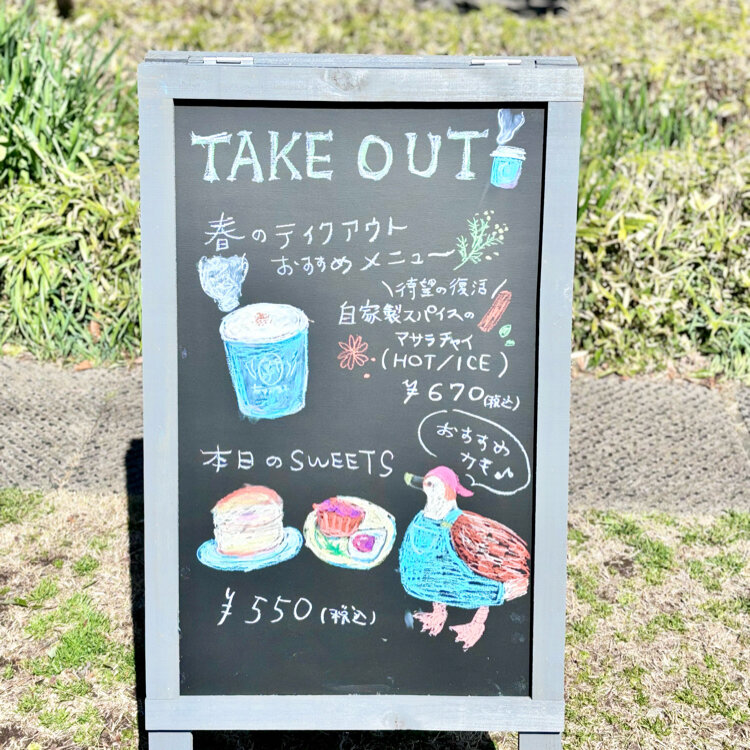 TAKE OUT
春のテイクアウト
おすすめメニュー
\待望の復活/
自家製スパイスの
マサラチャイ
(HOT/ICE)
¥670(税込)
おすすめ
カモ♪
本日のSWEETS
¥550(税込)